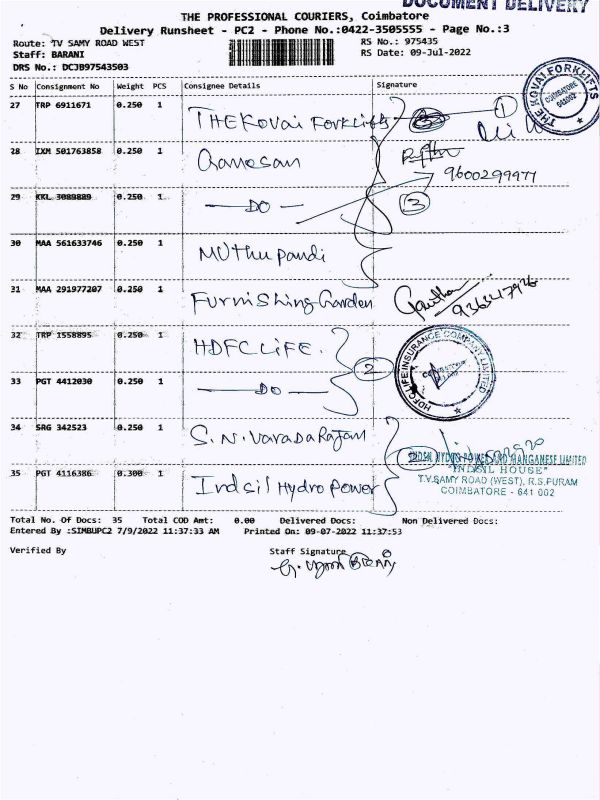 DOCUMENT DELIVERY
THE PROFESSIONAL COURIERS, Coimbatore
Delivery Runsheet - PC2 - Phone No.:0422-3505555 - Page No.:3
Route: TV SAMY ROAD WEST
RS No.: 975435
Staff: BARANI
RS Date: 09-Jul-2022
DRS No.: DCJB97543503
S No Consignment No Weight PCS Consignee Details Signature
27 TRP 6911671 0.250 1 THE Kovai Forklifts 1
THE KOVAI FORKLIFTS COIMBATORE
28 IXM 501763858 0.250 1 Ganesan
9600299977
29 KKL 3089889 0.250 1 — DO — 3
30 MAA 561633746 0.250 1 Muthu pandi
31 MAA 291977207 0.250 1 Furnishing Garden
32 TRP 1558895 0.250 1 HDFC LIFE.
2
HDFC LIFE INSURANCE COMPANY LIMITED
33 PGT 4412030 0.250 1 — DO —
34 SRG 342523 0.250 1 S.N. Varadarajan
INDSIL HYDRO POWER AND MANGANESE LIMITED
"INDSIL HOUSE"
T.V.SAMY ROAD (WEST), R.S.PURAM
COIMBATORE - 641 002
35 PGT 4116386 0.300 1 Indsil Hydro Power
Total No. Of Docs: 35 Total COD Amt: 0.00 Delivered Docs: Non Delivered Docs:
Entered By :SIMBUPC2 7/9/2022 11:37:33 AM Printed On: 09-07-2022 11:37:53
Verified By Staff Signature